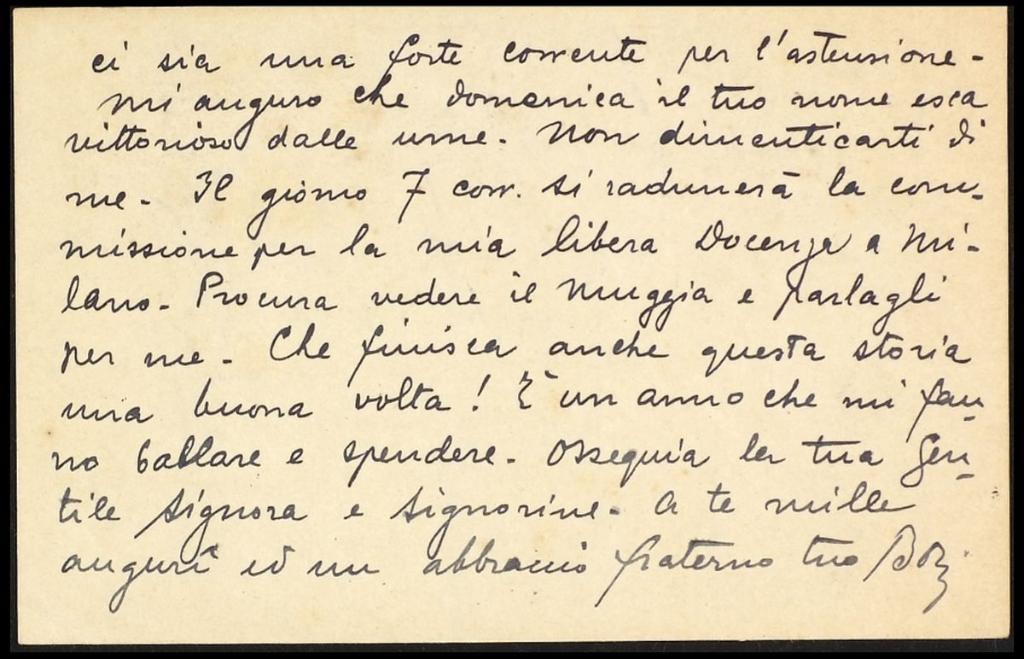 ci sia una forte corrente per l'astensione -
mi auguro che domenica il tuo nome esca
vittorioso dalle urne. Non dimenticarti di
me. Il giorno 7 corr. si radunerà la com-
missione per la mia libera Docenza a Mi-
lano. Procura vedere il Muggia e parlagli
per me. Che finisca anche questa storia
una buona volta! È un anno che mi fan-
no ballare e spendere. Ossequia la tua Gen-
tile Signora e Signorine. A te mille
auguri ed un abbraccio fraterno tuo